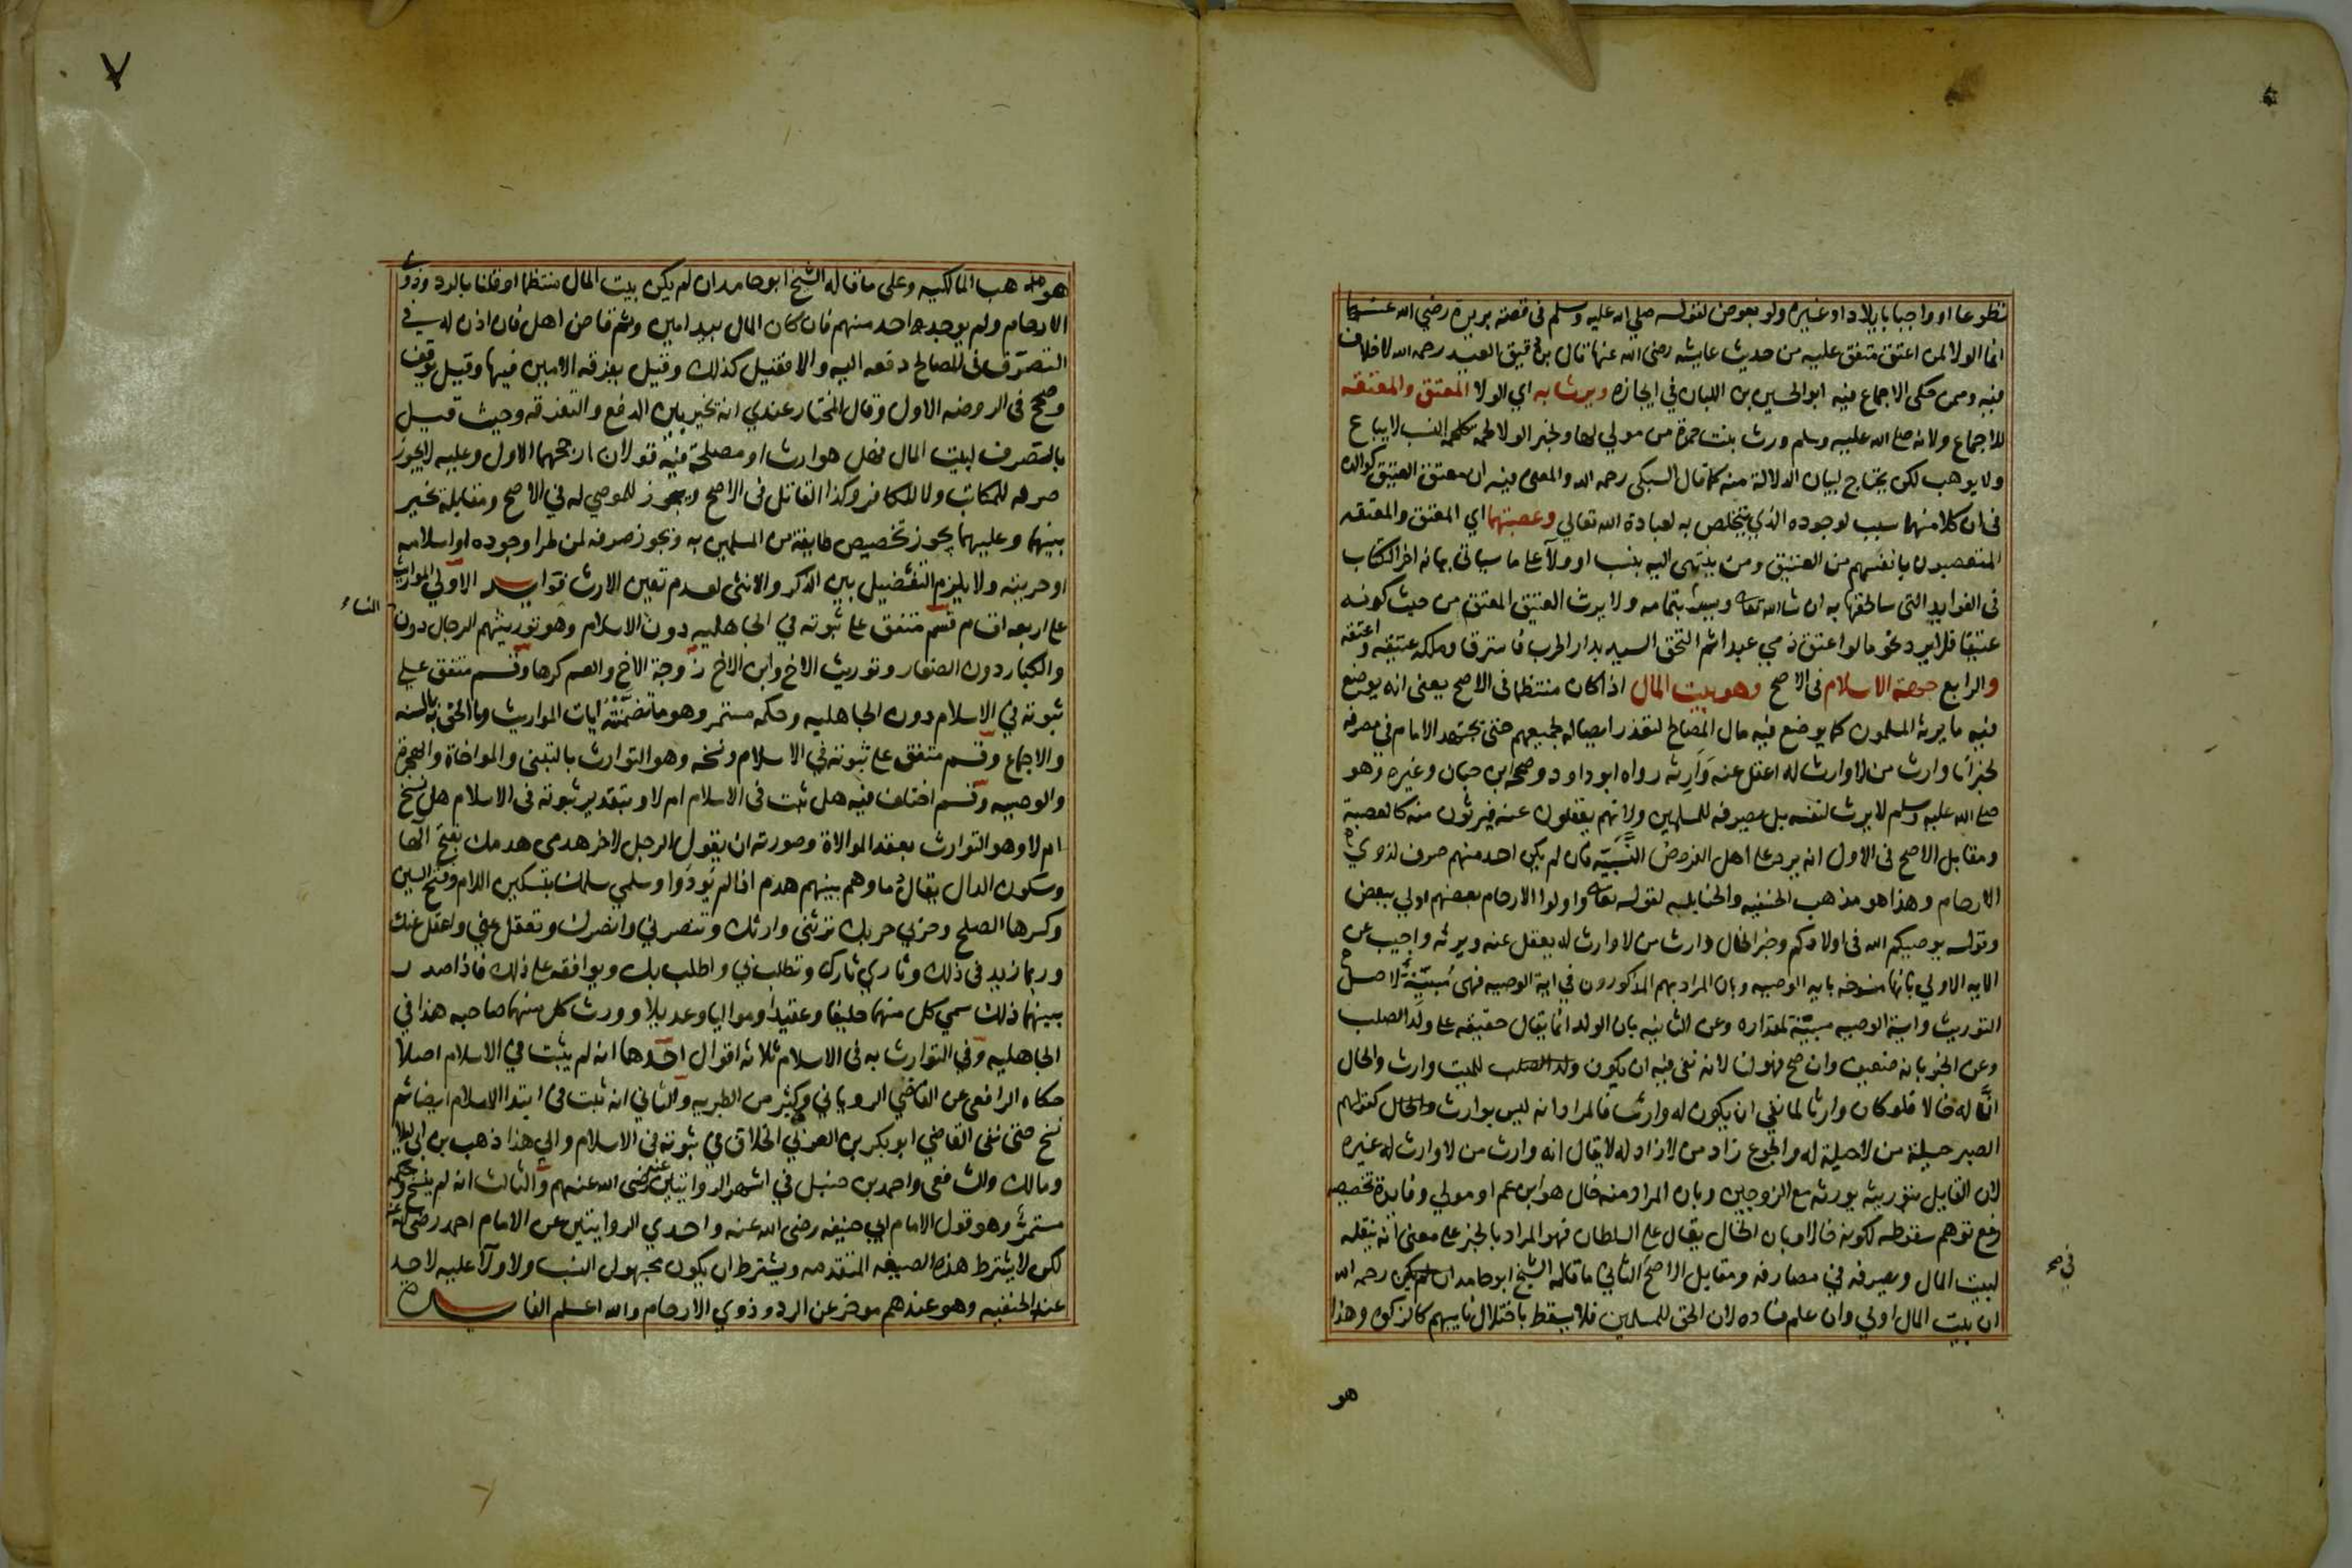 تطوعا او واجبا بايلاد او غيره ولو بعوض لقوله صلي الله عليه وسلم في قصة بريرة رضي الله عنها
انما الولا لمن اعتق متفق عليه من حديث عايشه رضي الله عنها قال بن دقيق العيد رحمه الله لا خلاف
فيه وممن حكى الاجماع فيه ابو الحسين بن اللبان في ايجازه ويرث به اي الولا المعتق والمعتقه
للاجماع ولانه صلى الله عليه وسلم ورث بنت حمزة من مولي لها ولخبر الولا لحمة كلحمة النسب لا يباع
ولا يوهب لكن يحتاج لبيان الدلالة منه كما قال السبكي رحمه الله والمعنى فيه ان معتق العتيق كوالده
في ان كلا منهما سبب لوجوده الذي يتخلص به لعبادة الله تعالي وعصبتهما اي المعتق والمعتقه
المتعصبون بانفسهم من العتيق ومن ينتهي اليه بنسب او ولآ على ما سياتي بيانه اخر الكتاب
في الفوايد التي سالحقها به ان شا الله تعالى وبيته بتمامه ولا يرث العتيق المعتق من حيث كونه
عتيقا فلا يرد نحو ما لو اعتق ذمي عبدا ثم التحق السيد بدار الحرب فاسترق وملكه عتيقه واعتقه
والرابع جهة الاسلام في الاصح وهو بيت المال اذا كان منتظما في الاصح يعنى انه يوضع
فيه ما يرثه المسلمون كما يوضع فيه مال المصالح لتعذر ايصاله لجميعهم حتى يجتهد الامام في مصرفه
لخبر انا وارث من لا وارث له اعقل عنه وَارِثه رواه ابو داود وصححه ابن حبان وغيره وهو
صلى الله عليه وسلم لا يرث لنفسه بل يصرفه للمسلمين ولانهم يعقلون عنه فيرثون منه كالعصبة
ومقابل الاصح في الاول انه يرد على اهل الفروض النَّسَبيّه فان لم يكن احد منهم صرف لذوي
الارحام وهذا هو مذهب الحنفيه والحنابله لقوله تعالى واولوا الارحام بعضهم اولي ببعض
وقوله يوصيكم الله في اولادكم وخبر الخال وارث من لا وارث له يعقل عنه ويرثه واجيب عن
الايه الاولي بانها منسوخه بايه الوصيه وبان المراد بهم المذكورون في اية الوصيه فهي مُبيّنِةٌ لاصل
التوريث واية الوصيه مبيّنة لمقداره وعن الثانيه بان الولد انما يقال حقيقة على ولد الصلب
وعن الخبر بانه ضعيف وان صح فهو لنا لانه نفى فيه ان يكون ولد الصلب للميت وارث والحال
انَّ له خالا فلو كان وارثا لما نفي ان يكون له وارث فالمراد انه ليس بوارث والخال كقولهم
الصبر حيلة من لا حيلة له والجوع زاد من لا زاد له لا يقال انه وارث من لا وارث له غيره
لان القايل بتوريثه يورثه مع الزوجين وبان المراد منه خال هو ابن عم او مولي وفايدة تخصيصه
رفع توهم سقوطه لكونه خالا وبان الخال يقال على السلطان فهو المراد بالخبر على معنى انه ينقله
لبيت المال ويصرفه في مصارفه ومقابل الاصح الثاني ما قاله الشيخ ابو حامد ان لم يكن رحمه الله
ان بيت المال اولي وان علم فساده لان الحق للمسلمين فلا يسقط باختلال نايبهم كالزكوه وهذا
في صح
هو
٧
هو مذهب المالكيه وعلى ما قاله الشيخ ابو حامد ان لم يكن بيت المال منتظما او قلنا بالرد وذوو
الارحام ولم يوجد احد منهم فان كان المال بيد امين وثم قاض اهل فان اذن له في
التصرّف في المصالح دفعه اليه والا فقيل كذلك وقيل يفرقه الامين فيها وقيل يوقف
وصحح في الروضه الاول وقال المختار عندي انه يخير بين الدفع والتفرقه وحيث قيل
بالتصرف لبيت المال فهل هو ارث او مصلحة فيه قولان ارجحهما الاول وعليه لا يجوز
صرفه للمكاتب ولا للكافر وكذا القاتل في الاصح ويجوز للموصي له في الاصح ومقابله تخير
بينهما وعليهما يجوز تخصيص طايفة من المسلمين به ونجوز صرفه لمن طرا وجوده او اسلامه
او حريته ولا يلزم التفضيل بين الذكر والانثى لعدم تعين الارث فوايد الاولي المواريث
على اربعه اقسام قسم متفق على ثبوته في الجاهليه دون الاسلام وهو توريثهم الرجال دون
النساء
والكبار دون الصغار وتوريث الاخ وابن الاخ زوجة الاخ والعم كرها وقسم متفق علي
ثبوته في الاسلام دون الجاهليه وحكمه مستمر وهو ما تضمنته ايات المواريث وما الحق به بالسنه
والاجماع وقسم متفق على ثبوته في الاسلام ونسخه وهو التوارث بالتبنى والمواخاة والهجرة
والوصيه وقسم اختلف فيه هل ثبت في الاسلام ام لا وبتقدير ثبوته في الاسلام هل نسخ
ام لا وهو التوارث بعقد الموالاة وصورته ان يقول الرجل لاخر هدمي هدمك بفتح الها
وسكون الدال يقال دما وهم بينهم هدم اذا لم يُودَوا وسلمي سلمك بتسكين اللام وفتح السين
وكسرها الصلح وحربي حربك ترثني وارثك وتنصرني وانصرك وتعقل عني واعقل عنك
وربما زيد في ذلك وثاري ثارك وتطلب بي واطلب بك ويوافقه على ذلك فاذا صدر
بينهما ذلك سمي كل منهما حليفا وعقيدا ومواليا وعديلا وورث كل منهما صاحبه هذا في
الجاهليه وفي التوارث به في الاسلام ثلاثه اقوال احدها انه لم يثبت في الاسلام اصلا
حكاه الرافعى عن القاضي الروياني وكثير من الطبريه والثاني انه ثبت في ابتدا الاسلام ايضا ثم
نسخ حتى نفى القاضي ابو بكر بن العربي الخلاف في ثبوته في الاسلام والي هذا ذهب بن ابي ليلا
ومالك والشافعى واحمد بن حنبل في اشهر الروايتين عنه رضى الله عنهم والثالث انه لم ينسخ وحكمه
مستمر وهو قول الامام ابي حنيفه رضى الله عنه واحدي الروايتين عن الامام احمد رضى الله عنه
لكن لا يشترط هذه الصيغه المتقدمه ويشترط ان يكون مجهول النسب ولا ولآ عليه لاحد
عند الحنفيه وهو عندهم موخر عن الرد وذوي الارحام والله اعلم